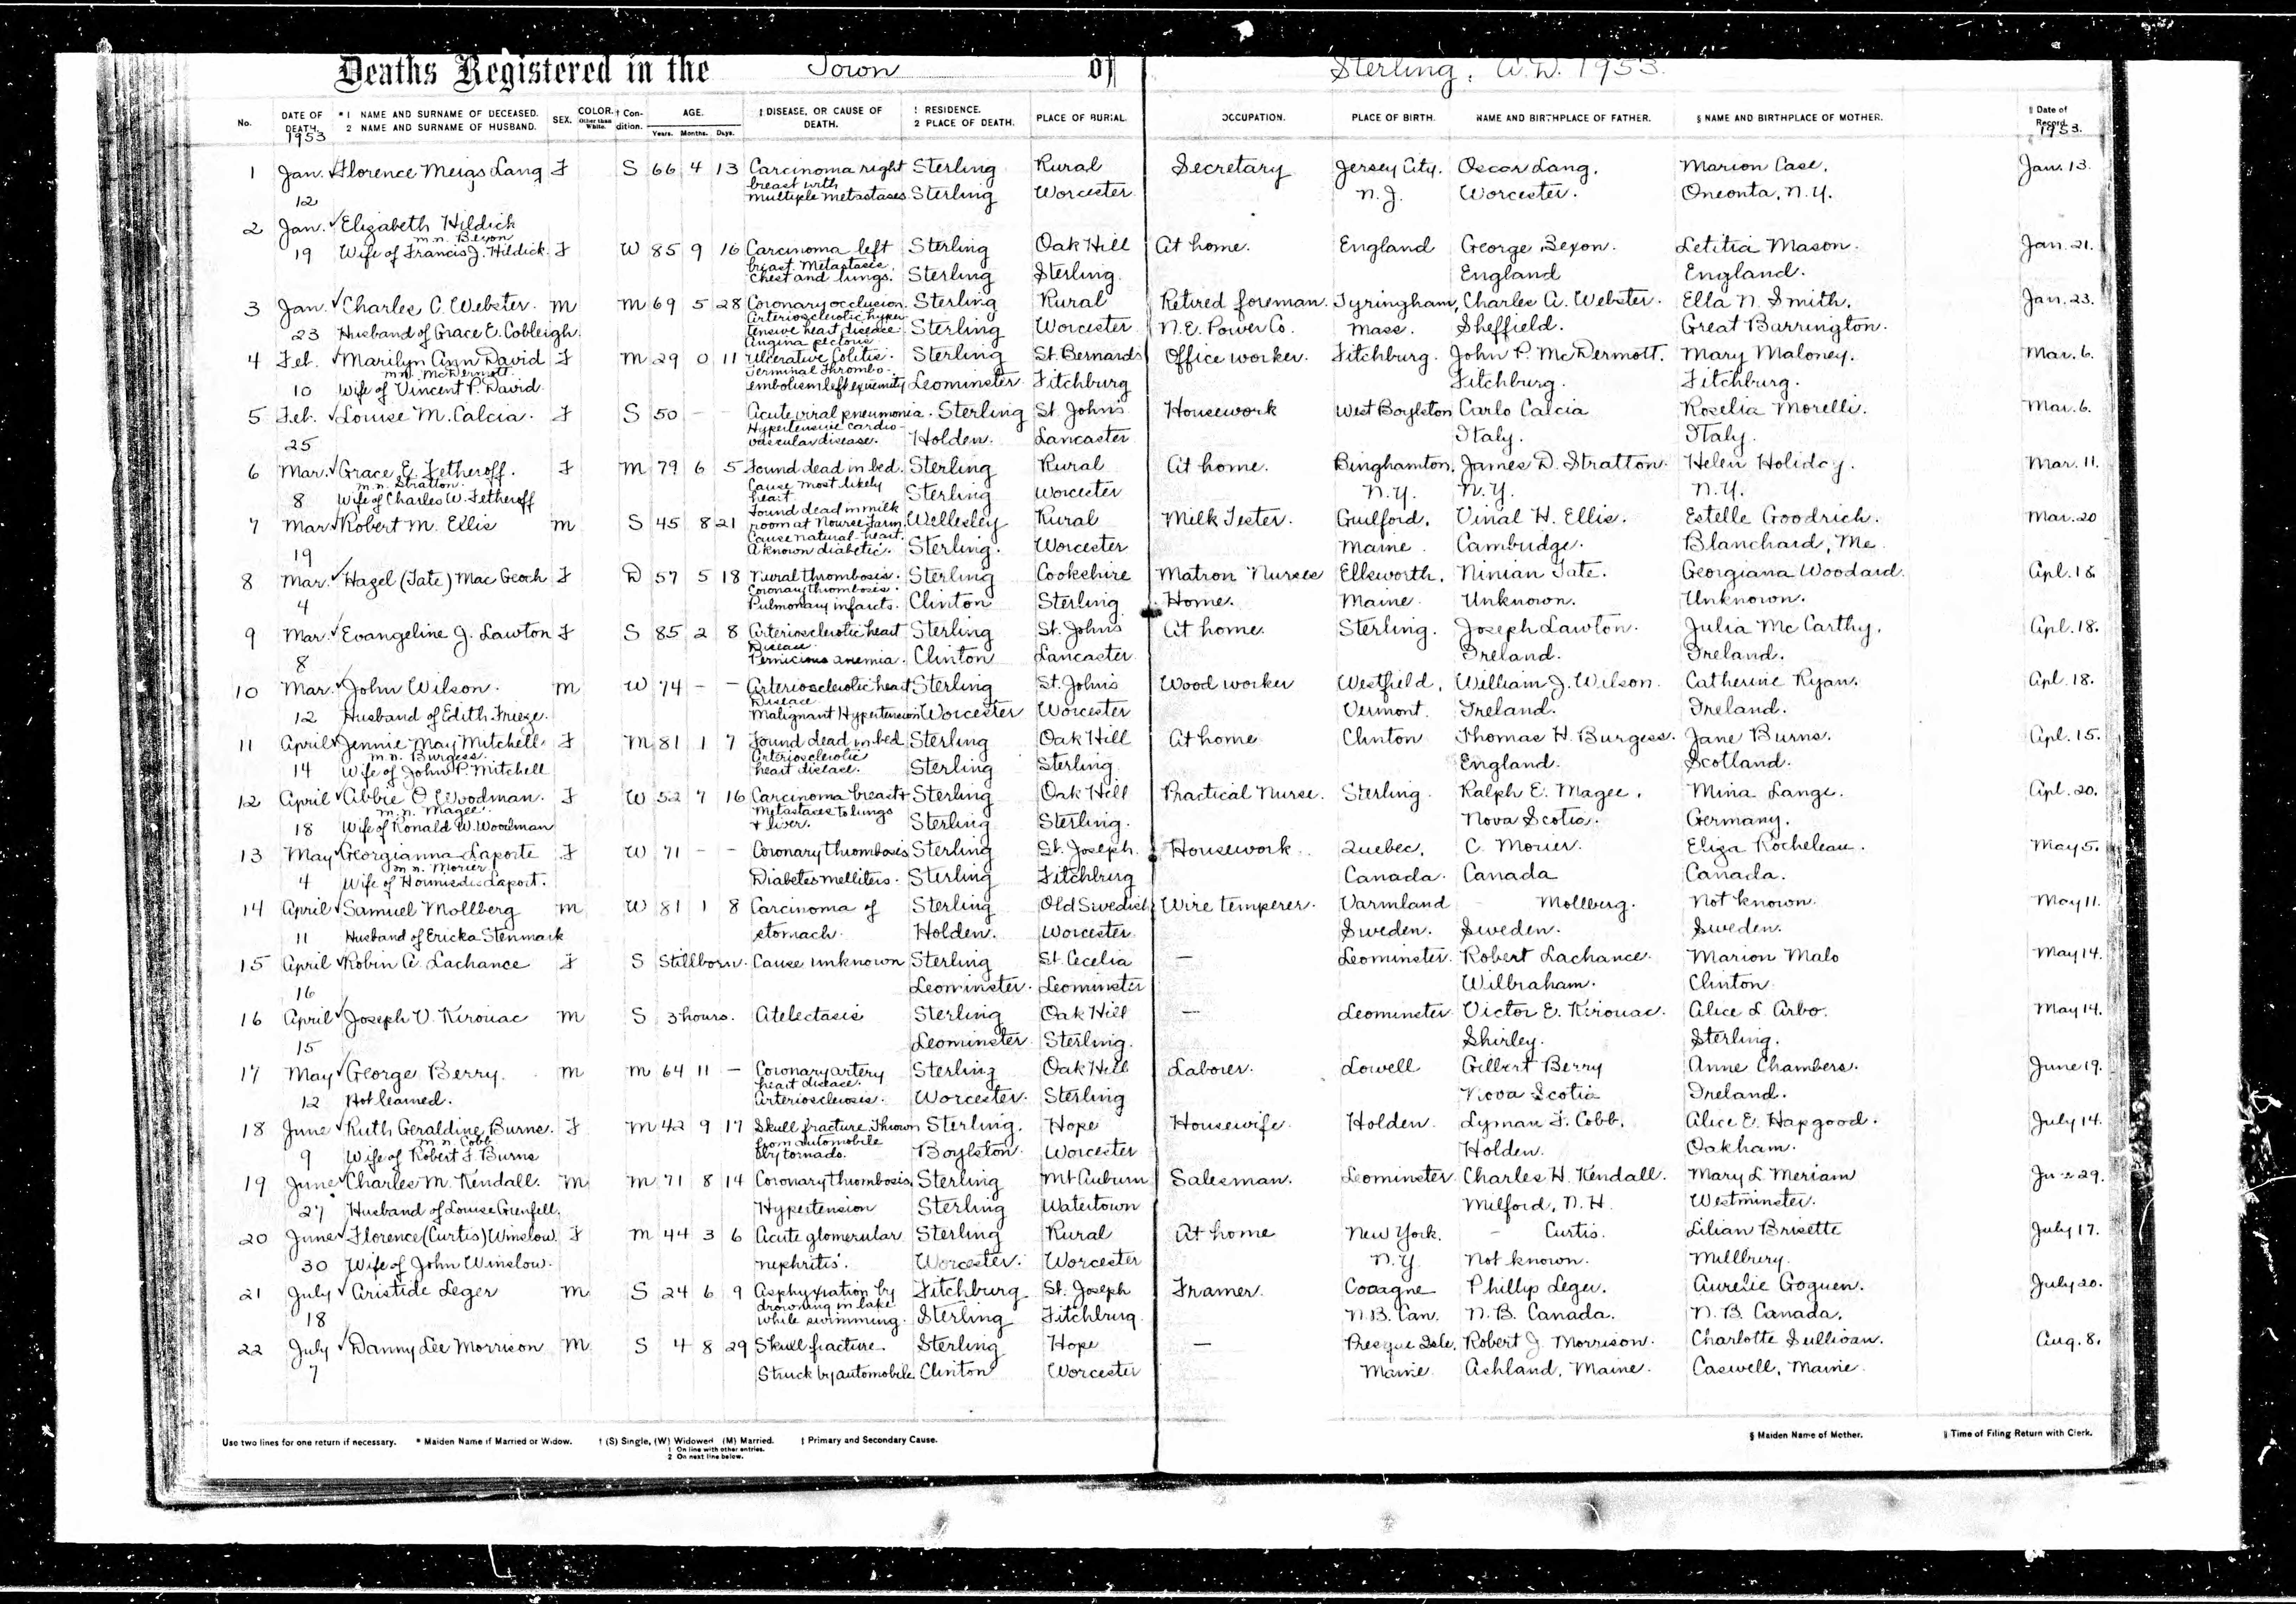 Deaths Registered in the Town of Sterling, A.D. 1953.
No. DATE OF DEATH. 1953 *1 NAME AND SURNAME OF DECEASED. 2 NAME AND SURNAME OF HUSBAND. SEX. COLOR. Other than White. † Condition. AGE. Years. Months. Days. ‡ DISEASE, OR CAUSE OF DEATH. ! RESIDENCE. 2 PLACE OF DEATH. PLACE OF BURIAL. OCCUPATION. PLACE OF BIRTH. NAME AND BIRTHPLACE OF FATHER. § NAME AND BIRTHPLACE OF MOTHER. ‖ Date of Record. 1953.
1 Jan. Florence Meigs Lang F S 66 4 13 Carcinoma right Sterling Rural Secretary Jersey City. Oscar Lang. Marion Case. Jan. 13.
breast with
12 multiple metastases. Sterling Worcester N.J. Worcester. Oneonta, N.Y.
2 Jan. Elizabeth Hildick
m.n. Bexon
19 Wife of Francis J. Hildick. F W 85 9 16 Carcinoma left Sterling Oak Hill At home. England George Bexon. Letitia Mason. Jan. 21.
breast. Metastasis.
Chest and lungs. Sterling Sterling. England England.
3 Jan. Charles C. Webster. M M 69 5 28 Coronary occlusion. Sterling Rural Retired foreman. Tyringham, Charles A. Webster. Ella N. Smith. Jan. 23.
Arteriosclerotic hyper-
23 Husband of Grace E. Cobleigh. tensive heart disease. Sterling Worcester N.E. Power Co. Mass. Sheffield. Great Barrington.
Angina pectoris.
4 Feb. Marilyn Ann David F M 29 0 11 Ulcerative Colitis. Sterling St. Bernards Office worker. Fitchburg. John P. McDermott. Mary Maloney. Mar. 6.
m.n. McDermott Terminal Thrombo-
10 Wife of Vincent P. David embolism left extremity Leominster Fitchburg Fitchburg. Fitchburg.
5 Feb. Louise M. Calcia. F S 50 – – Acute viral pneumonia. Sterling St. John's Housework West Boylston Carlo Calcia Roselia Morelli. Mar. 6.
Hypertensive cardio-
25 vascular disease. Holden. Lancaster Italy. Italy.
6 Mar. Grace E. Fetheroff. F M 79 6 5 Found dead in bed. Sterling Rural At home. Binghamton, James D. Stratton. Helen Holiday. Mar. 11.
m.n. Stratton. Cause most likely
8 Wife of Charles W. Fetheroff heart. Sterling Worcester N.Y. N.Y. N.Y.
Found dead in milk
7 Mar. Robert M. Ellis M S 45 8 21 room at Nourse Farm. Wellesley Rural Milk Tester. Guilford, Vinal H. Ellis. Estelle Goodrich. Mar. 20
Cause natural-heart.
19 A known diabetic. Sterling. Worcester Maine. Cambridge. Blanchard, Me.
8 Mar. Hazel (Tate) Mac Geoch F D 57 5 18 Mural thrombosis. Sterling Cookshire Matron Nurses Ellsworth, Ninian Tate. Georgiana Woodard. Apl. 18
Coronary thrombosis.
4 Pulmonary infarcts. Clinton Sterling Home. Maine. Unknown. Unknown.
9 Mar. Evangeline J. Lawton F S 85 2 8 Arteriosclerotic heart Sterling St. John's At home. Sterling. Joseph Lawton. Julia McCarthy. Apl. 18.
Disease.
8 Pernicious anemia. Clinton Lancaster Ireland. Ireland.
10 Mar. John Wilson. M W 74 – – Arteriosclerotic heart Sterling St. John's Wood worker Westfield, William J. Wilson. Catherine Ryan. Apl. 18.
Disease
12 Husband of Edith Frieze. Malignant Hypertension Worcester Worcester Vermont. Ireland. Ireland.
11 April Jennie May Mitchell. F M 81 1 7 Found dead in bed Sterling Oak Hill At home Clinton Thomas H. Burgess. Jane Burns. Apl. 15.
m.n. Burgess. Arteriosclerotic
14 Wife of John P. Mitchell heart disease. Sterling Sterling. England. Scotland.
12 April Abbie O. Woodman. F W 52 7 16 Carcinoma breast + Sterling Oak Hill Practical Nurse. Sterling. Ralph E. Magee. Mina Lange. Apl. 20.
m.n. Magee. Metastases to lungs
18 Wife of Ronald W. Woodman + liver. Sterling Sterling. Nova Scotia. Germany.
13 May Georgianna Laporte F W 71 – – Coronary thrombosis Sterling St. Joseph. Housework. Quebec, C. Morier. Eliza Rocheleau. May 5.
m.n. Morier
4 Wife of Hormisdis Laport. Diabetes mellitis. Sterling Fitchburg Canada. Canada Canada.
14 April Samuel Mollberg M W 81 1 8 Carcinoma of Sterling Old Swedish Wire temperer. Varmland – Mollberg. Not known. May 11.
11 Husband of Ericka Stenmark stomach. Holden. Worcester Sweden. Sweden. Sweden.
15 April Robin A. Lachance F S Stillborn. Cause unknown Sterling St. Cecelia – Leominster. Robert Lachance. Marion Malo May 14.
16 Leominster. Leominster Wilbraham. Clinton
16 April Joseph V. Kirouac M S 3 hours. Atelectasis Sterling Oak Hill – Leominster Victor E. Kirouac. Alice L. Arbo. May 14.
15 Leominster Sterling. Shirley. Sterling.
17 May George Berry. M M 64 11 – Coronary artery Sterling Oak Hill Laborer. Lowell Gilbert Berry Anne Chambers. June 19.
heart disease.
12 Not learned. Arteriosclerosis. Worcester. Sterling Nova Scotia Ireland.
18 June Ruth Geraldine Burns. F M 42 9 17 Skull fracture. Thrown Sterling. Hope Housewife. Holden. Lyman F. Cobb. Alice E. Hapgood. July 14.
m.n. Cobb from automobile
9 Wife of Robert F. Burns by tornado. Boylston. Worcester Holden. Oakham.
19 June Charles M. Kendall. M M 71 8 14 Coronary thrombosis. Sterling Mt Auburn Salesman. Leominster Charles H. Kendall. Mary L. Meriam June 29.
27 Husband of Louise Grenfell. Hypertension Sterling Watertown Milford, N.H. Westminster.
20 June Florence (Curtis) Winslow. F M 44 3 6 Acute glomerular Sterling Rural At home New York. – Curtis. Lilian Brisette July 17.
30 Wife of John Winslow. nephritis. Worcester. Worcester N.Y. Not known. Millbury.
21 July Aristide Leger M S 24 6 9 Asphyxiation by Fitchburg St. Joseph Framer. Cocagne Phillip Leger. Aurelie Goguen. July 20.
drowning in lake
18 while swimming. Sterling Fitchburg N.B. Can. N.B. Canada. N.B. Canada.
22 July Danny Lee Morrison M S 4 8 29 Skull fracture. Sterling Hope – Presque Isle. Robert J. Morrison. Charlotte Sullivan. Aug. 8.
7 Struck by automobile. Clinton Worcester Maine. Ashland, Maine. Caswell, Maine.
Use two lines for one return if necessary. * Maiden Name if Married or Widow. † (S) Single, (W) Widowed (M) Married. ‡ Primary and Secondary Cause. § Maiden Name of Mother. ‖ Time of Filing Return with Clerk.
1 On line with other entries.
2 On next line below.